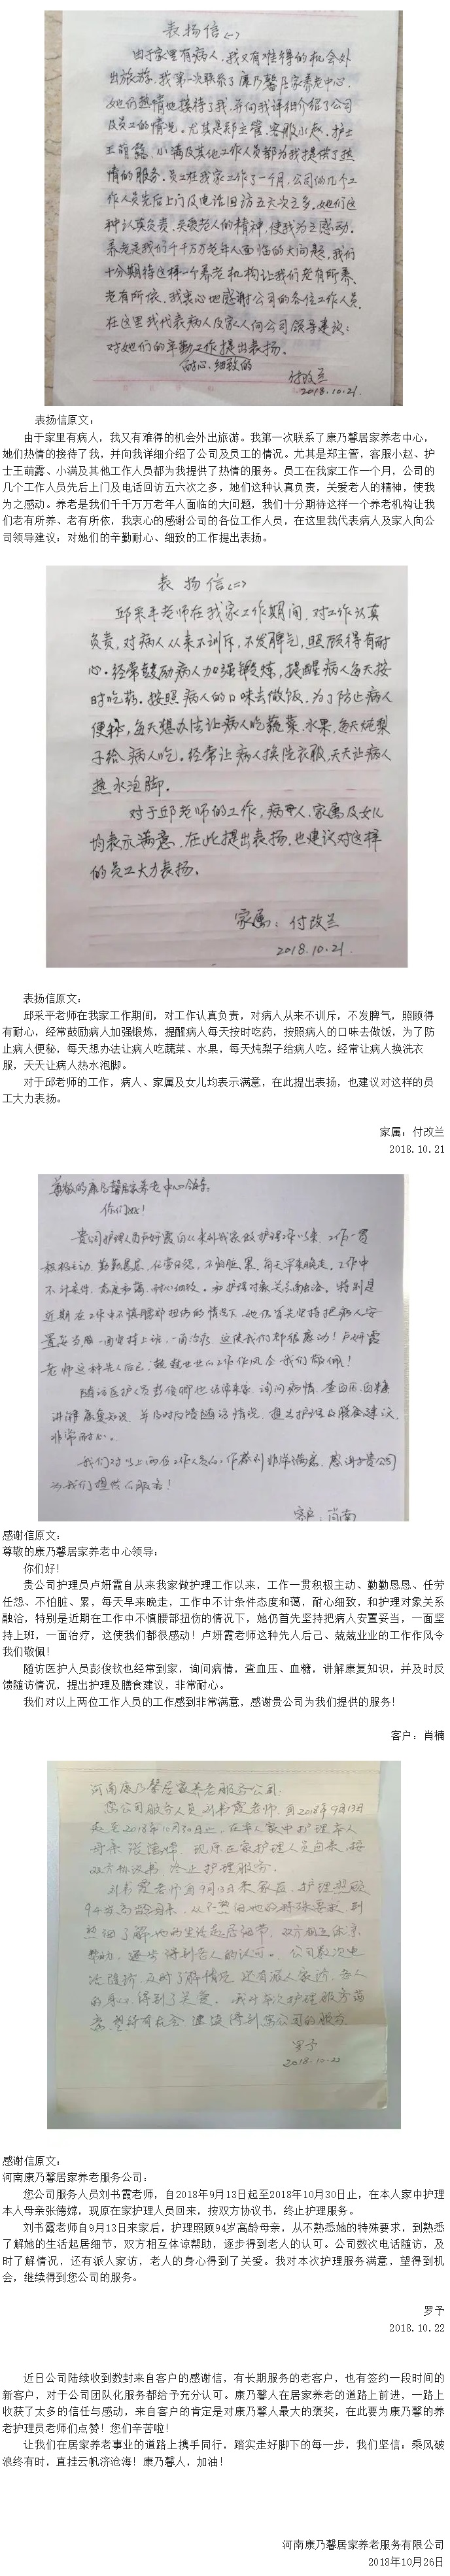 表扬信(一)
由于家里有病人,我又有难得的机会外
出旅游。我第一次联系了康乃馨居家养老中心,
她们热情地接待了我,并向我详细介绍了公司
及员工的情况。尤其是郑主管,客服小赵、护士
王萌露、小满及其他工作人员都为我提供了热
情的服务。员工在我家工作了一个月,公司的几个工
作人员先后上门及电话回访五六次之多。她们这
种认真负责、关爱老人的精神,使我为之感动。
养老是我们千千万万老年人面临的大问题,我们
十分期待这样一个养老机构让我们老有所养、
老有所依,我衷心地感谢公司的各位工作人员,
在这里我代表病人及家人向公司领导建议:
对她们的辛勤工作提出表扬。
耐心、细致的
付改兰
2018.10.21.
表扬信原文:
由于家里有病人,我又有难得的机会外出旅游。我第一次联系了康乃馨居家养老中心,
她们热情的接待了我,并向我详细介绍了公司及员工的情况。尤其是郑主管,客服小赵、护
士王萌露、小满及其他工作人员都为我提供了热情的服务。员工在我家工作一个月,公司的
几个工作人员先后上门及电话回访五六次之多,她们这种认真负责,关爱老人的精神,使我
为之感动。养老是我们千千万万老年人面临的大问题,我们十分期待这样一个养老机构让我
们老有所养、老有所依,我衷心的感谢公司的各位工作人员,在这里我代表病人及家人向公
司领导建议:对她们的辛勤耐心、细致的工作提出表扬。
表扬信(二)
邱采平老师在我家工作期间,对工作认真
负责,对病人从来不训斥,不发脾气,照顾得有耐
心。经常鼓励病人加强锻炼,提醒病人每天按
时吃药。按照病人的口味去做饭。为了防止病人
便秘,每天想办法让病人吃蔬菜、水果,每天炖梨
子给病人吃。经常让病人换洗衣服,天天让病人
热水泡脚。
对于邱老师的工作,病人、家属及女儿
均表示满意,在此提出表扬,也建议对这样
的员工大力表扬。
家属:付改兰
2018.10.21.
表扬信原文:
邱采平老师在我家工作期间,对工作认真负责,对病人从来不训斥,不发脾气,照顾得
有耐心,经常鼓励病人加强锻炼,提醒病人每天按时吃药,按照病人的口味去做饭,为了防
止病人便秘,每天想办法让病人吃蔬菜、水果,每天炖梨子给病人吃。经常让病人换洗衣
服,天天让病人热水泡脚。
对于邱老师的工作,病人、家属及女儿均表示满意,在此提出表扬,也建议对这样的员
工大力表扬。
家属:付改兰
2018.10.21
尊敬的康乃馨居家养老中心领导:
你们好!
贵公司护理员卢妍霞自从来我家做护理工作以来,工作一贯
积极主动、勤勤恳恳、任劳任怨、不怕脏、累,每天早来晚走,工作中
不计条件,态度和蔼,耐心细致,和护理对象关系融洽。特别是
近期在工作中不慎腰部扭伤的情况下,她仍首先坚持把病人安
置妥当,一面坚持上班,一面治疗,这使我们都很感动!卢妍霞
老师这种先人后己、兢兢业业的工作作风令我们敬佩!
随访医护人员彭俊钦也经常来家,询问病情,查血压、血糖,
讲解康复知识,并及时反馈随访情况,提出护理及膳食建议,
非常耐心。
我们对以上两位工作人员的工作感到非常满意,感谢贵公司
为我们提供的服务!
客户:肖南
感谢信原文:
尊敬的康乃馨居家养老中心领导:
你们好!
贵公司护理员卢妍霞自从来我家做护理工作以来,工作一贯积极主动、勤勤恳恳、任劳
任怨、不怕脏、累,每天早来晚走,工作中不计条件态度和蔼,耐心细致,和护理对象关系
融洽,特别是近期在工作中不慎腰部扭伤的情况下,她仍首先坚持把病人安置妥当,一面坚
持上班,一面治疗,这使我们都很感动!卢妍霞老师这种先人后己、兢兢业业的工作作风令
我们敬佩!
随访医护人员彭俊钦也经常到家,询问病情,查血压、血糖,讲解康复知识,并及时反
馈随访情况,提出护理及膳食建议,非常耐心。
我们对以上两位工作人员的工作感到非常满意,感谢贵公司为我们提供的服务!
客户:肖楠
河南康乃馨居家养老服务公司:
您公司服务人员刘书霞老师,自2018年9月13日
起至2018年10月30日止,在本人家中护理本人
母亲张德嫦,现原在家护理人员回来,按
双方协议书,终止护理服务。
刘书霞老师自9月13日来家后,护理照顾
94岁高龄母亲,从不熟悉她的特殊要求,到
熟悉了解她的生活起居细节,双方相互体谅
帮助,逐步得到老人的认可。公司数次电
话随访,及时了解情况,还有派人家访,老人
的身心得到了关爱。我对本次护理服务满
意,望得到机会继续得到您公司的服务。
罗予
2018.10.22
感谢信原文:
河南康乃馨居家养老服务公司:
您公司服务人员刘书霞老师,自2018年9月13日起至2018年10月30日止,在本人家中护理
本人母亲张德嫦,现原在家护理人员回来,按双方协议书,终止护理服务。
刘书霞老师自9月13日来家后,护理照顾94岁高龄母亲,从不熟悉她的特殊要求,到熟悉
了解她的生活起居细节,双方相互体谅帮助,逐步得到老人的认可。公司数次电话随访,及
时了解情况,还有派人家访,老人的身心得到了关爱。我对本次护理服务满意,望得到机
会,继续得到您公司的服务。
罗予
2018.10.22
近日公司陆续收到数封来自客户的感谢信,有长期服务的老客户,也有签约一段时间的
新客户,对于公司团队化服务都给予充分认可。康乃馨人在居家养老的道路上前进,一路上
收获了太多的信任与感动,来自客户的肯定是对康乃馨人最大的褒奖,在此要为康乃馨的养
老护理员老师们点赞!您们辛苦啦!
让我们在居家养老事业的道路上携手同行,踏实走好脚下的每一步,我们坚信:乘风破
浪终有时,直挂云帆济沧海!康乃馨人,加油!
河南康乃馨居家养老服务有限公司
2018年10月26日